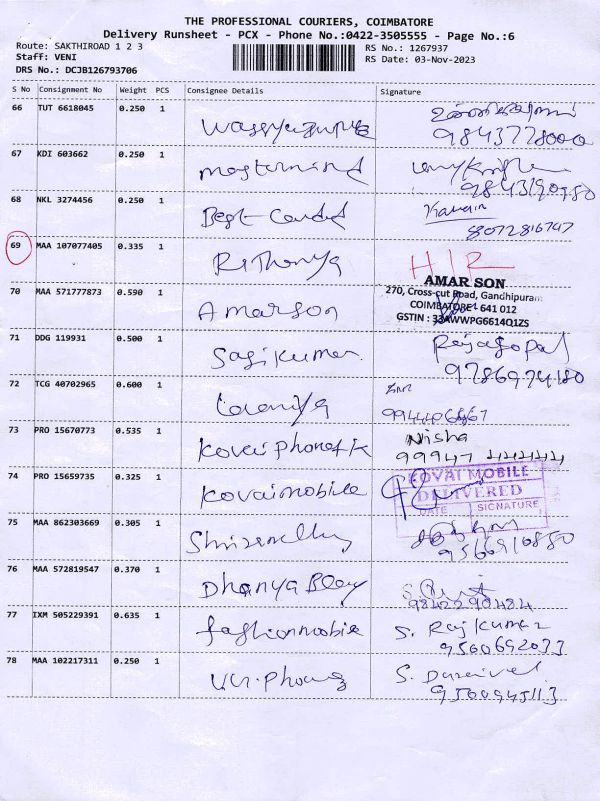 THE PROFESSIONAL COURIERS, COIMBATORE
Delivery Runsheet - PCX - Phone No.:0422-3505555 - Page No.:6
Route: SAKTHIROAD 1 2 3
RS No.: 1267937
Staff: VENI
RS Date: 03-Nov-2023
DRS No.: DCJB126793706
S No Consignment No Weight PCS Consignee Details Signature
66 TUT 6618045 0.250 1
9843728000
67 KDI 603662 0.250 1 mastermind
68 NKL 3274456 0.250 1 Best
8072816747
69 MAA 107077405 0.335 1 Rithanya
AMAR SON
270, Cross-cut Road, Gandhipuram
COIMBATORE - 641 012
GSTIN : 33AWWPG6614Q1ZS
70 MAA 571777873 0.590 1 Amarson
71 DDG 119931 0.500 1 Sasikumar Rajagopal
9786974180
72 TCG 40702965 0.600 1
73 PRO 15670773 0.535 1 Nisha
99947 44444
74 PRO 15659735 0.325 1 Kovaimobile
KOVAI MOBILE
DELIVERED
DATE SIGNATURE
75 MAA 862303669 0.305 1
9566910880
76 MAA 572819547 0.370 1 Dhanya
9842290484
77 IXM 505229391 0.635 1 fashionmobile S. Rajkumar
9500692033
78 MAA 102217311 0.250 1
9500945113